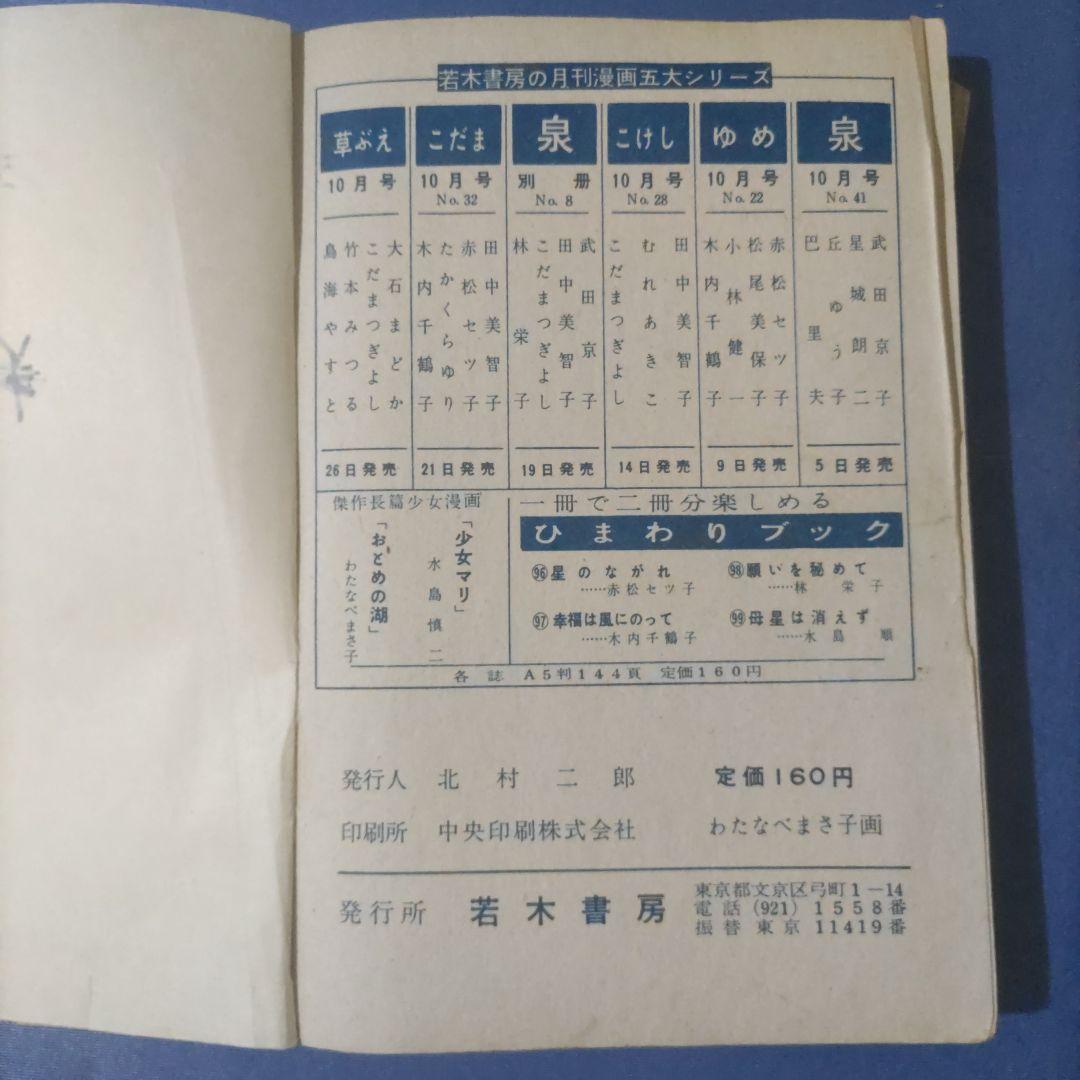 若木書房の月刊漫画五大シリーズ
泉
10月号
No. 41
武田京子
星城朗二
丘ゆう子
巴里夫
5日発売
ゆめ
10月号
No. 22
赤松セツ子
松尾美保子
小林健一
木内千鶴子
9日発売
こけし
10月号
No. 28
田中美智子
むれあきこ
こだまつぎよし
14日発売
泉
別冊
No. 8
武田京子
田中美智子
こだまつぎよし
林栄子
19日発売
こだま
10月号
No. 32
田中美智子
赤松セツ子
たかくらゆり
木内千鶴子
21日発売
草ぶえ
10月号
大石まどか
こだまつぎよし
竹本みつる
鳥海やすと
26日発売
一冊で二冊分楽しめる
ひまわりブック
96星のながれ
……赤松セツ子
97幸福は風にのって
……木内千鶴子
98願いを秘めて
……林栄子
99母星は消えず
……水島順
傑作長篇少女漫画
「少女マリ」
水島慎二
「おとめの湖」
わたなべまさ子
各誌 A5判144頁 定価160円
発行人 北村二郎 定価160円
印刷所 中央印刷株式会社 わたなべまさ子画
発行所 若木書房
東京都文京区弓町1－14
電話(921)1558番
振替東京11419番